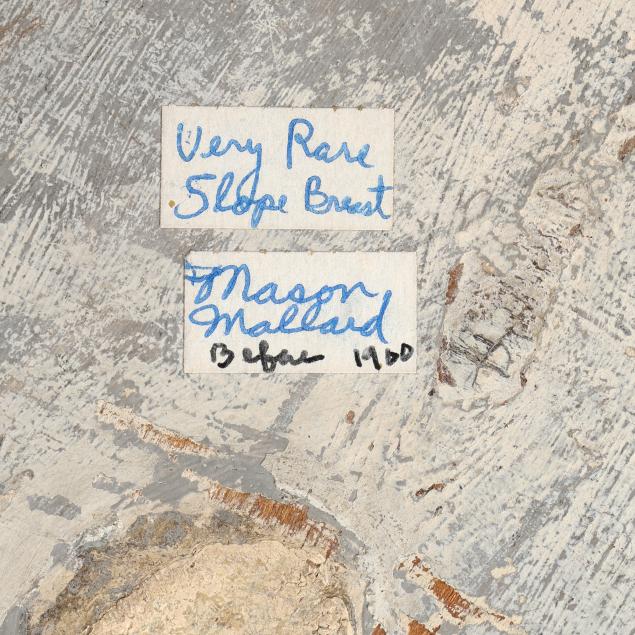 Very Rare
Slope Breast
Mason
Mallard
Before 1900